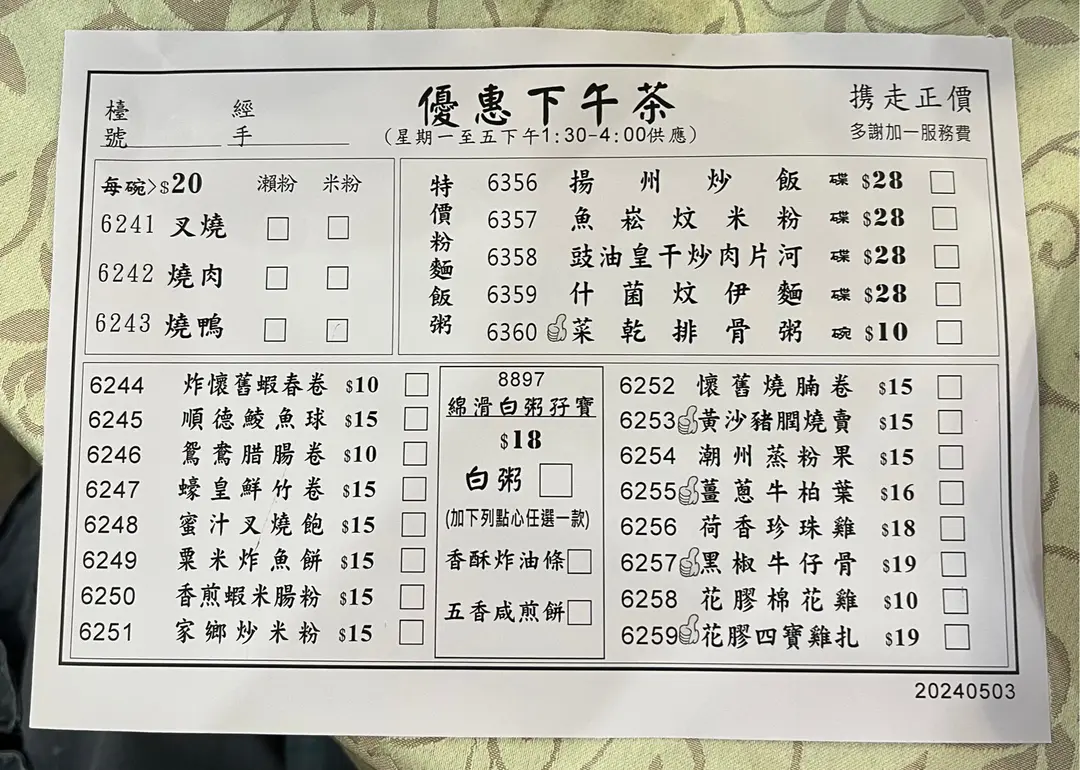 檯號
經手
優惠下午茶
(星期一至五下午1:30-4:00供應)
携走正價
多謝加一服務費
每碗>$20 瀨粉 米粉
6241 叉燒
6242 燒肉
6243 燒鴨
特價粉麵飯粥
6356 揚州炒飯 碟 $28
6357 魚崧炆米粉 碟 $28
6358 豉油皇干炒肉片河 碟 $28
6359 什菌炆伊麵 碟 $28
6360 菜乾排骨粥 碗 $10
6244 炸懷舊蝦春卷 $10
6245 順德鯪魚球 $15
6246 鴛鴦腊腸卷 $10
6247 蠔皇鮮竹卷 $15
6248 蜜汁叉燒飽 $15
6249 粟米炸魚餅 $15
6250 香煎蝦米腸粉 $15
6251 家鄉炒米粉 $15
8897
綿滑白粥孖寶
$18
白粥
(加下列點心任選一款)
香酥炸油條
五香咸煎餅
6252 懷舊燒腩卷 $15
6253 黃沙豬膶燒賣 $15
6254 潮州蒸粉果 $15
6255 薑蔥牛柏葉 $16
6256 荷香珍珠雞 $18
6257 黑椒牛仔骨 $19
6258 花膠棉花雞 $10
6259 花膠四寶雞扎 $19
20240503